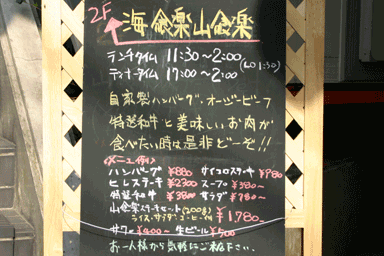 2F
海食楽山食楽
ランチタイム 11:30~2:00
(LO 1:30)
ディナータイム 17:00~2:00
自家製ハンバーグ、オージービーフ
特選和牛と美味しいお肉が
食べたい時は是非どーぞ!!
<メニュー例>
ハンバーグ ¥880 サイコロステーキ ¥780
ヒレステーキ ¥2300 スープ ¥380~
特選和牛 ¥3800 サラダ ¥780~
山食楽ステーキセット(200g) ¥1,780~
ライス・サラダ・コーヒー付
サワー ¥400~ 生ビール ¥500
お一人様から気軽にご来店下さい。